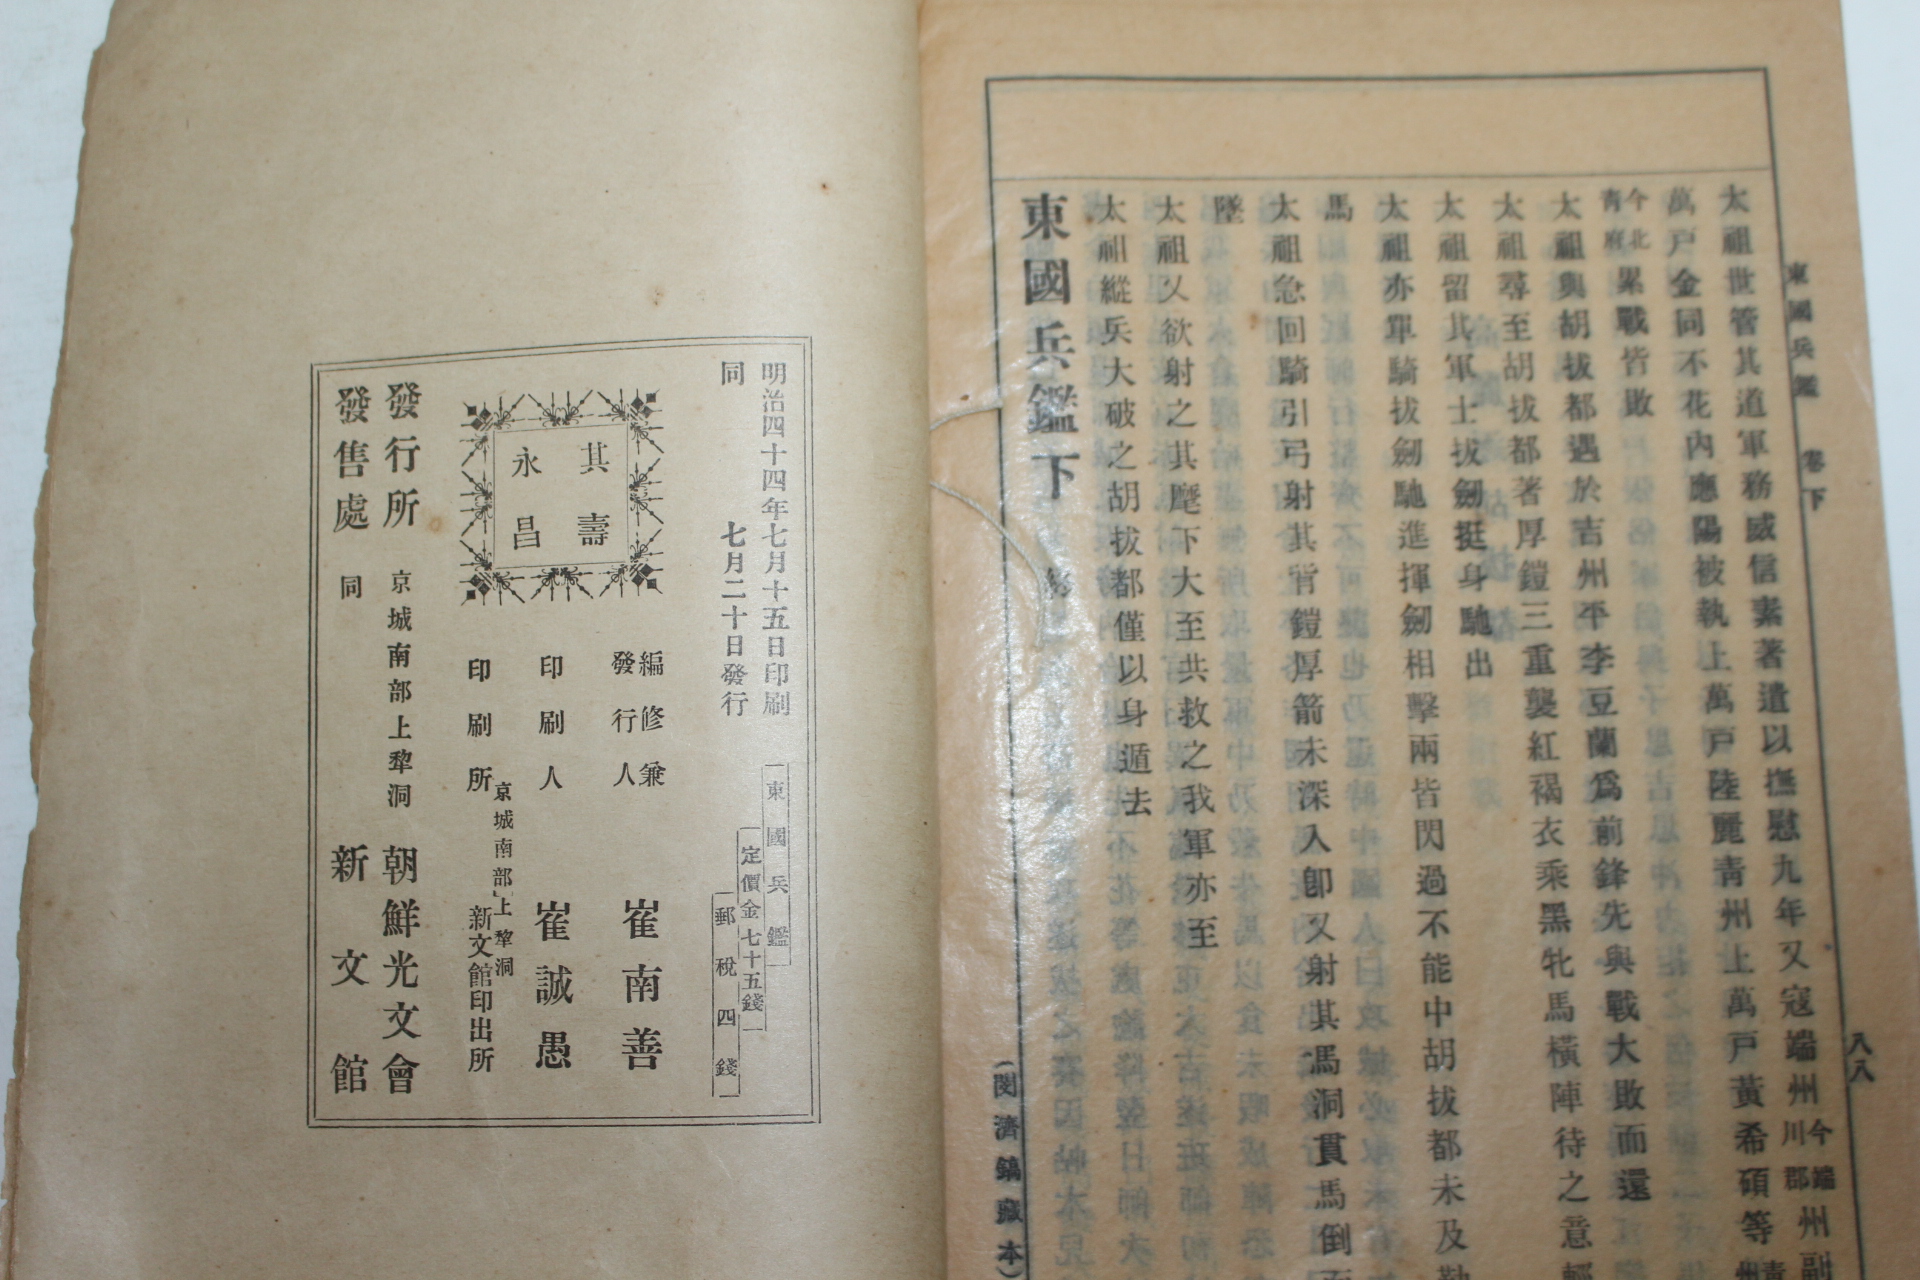 東國兵鑑 卷下 八八
太祖世管其道軍務威信素著遣以撫慰九年又寇端州今端川郡州副
萬戶金同不花內應陽被執上萬戶陸麗靑州上萬戶黃希碩等靑州
今北靑府累戰皆敗
太祖與胡拔都遇於吉州平李豆蘭爲前鋒先與戰大敗而還
太祖尋至胡拔都著厚鎧三重襲紅褐衣乘黑牝馬橫陣待之意輕
太祖留其軍士拔劒挺身馳出
太祖亦單騎拔劒馳進揮劒相擊兩皆閃過不能中胡拔都未及勒
馬
太祖急回騎引弓射其背鎧厚箭未深入卽又射其馬洞貫馬倒而
墜
太祖又欲射之其麾下大至共救之我軍亦至
太祖縱兵大破之胡拔都僅以身遁去
東國兵鑑下 終
(閔濟鎬藏本)
明治四十四年七月十五日印刷
同 七月二十日發行
東國兵鑑
定價金七十五錢
郵稅四錢
其壽
永昌
編修兼
發行人 崔南善
印刷人 崔誠愚
京城南部上犂洞
印刷所 新文館印出所
發行所 京城南部上犂洞 朝鮮光文會
發售處 同 新文館